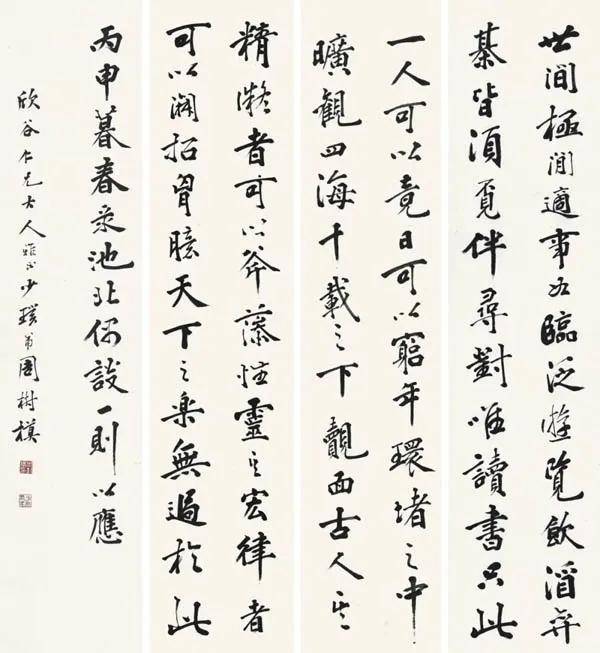 世間極閒適事如臨泛遊覽飲酒弈
棊皆須覓伴尋對唯讀書只此
一人可以竟日可以窮年環堵之中
曠觀四海千載之下覿面古人其
精微者可以斧藻性靈其宏偉者
可以開拓胷臆天下之樂無過於此
丙申暮春录池北偶談一則以應
欣谷仁兄大人雅正少璞弟周樹模